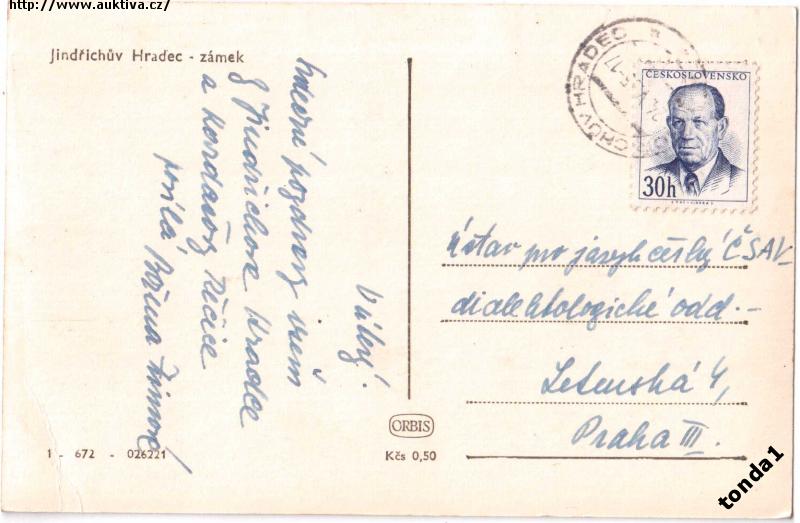 http://www.auktiva.cz/
Jindřichův Hradec - zámek
Srdečné pozdravy všem
z Jindřichova Hradce
a Kardašovy Řečice
posílá Božena
JINDŘICHŮV HRADEC
ČESKOSLOVENSKO
30h
Ústav pro jazyk český ČSAV
dialektologické odd. -
Letenská 4,
Praha III.
ORBIS
Kčs 0,50
1 - 672 - 026221
tonda1